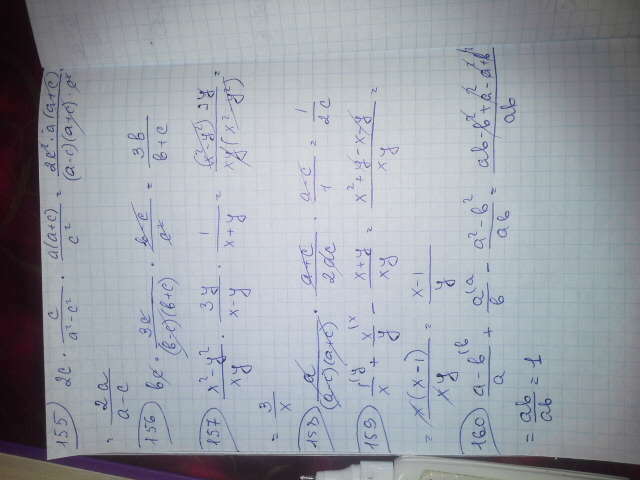 155) 2c · c/(a²-c²) · a(a+c)/c² = 2c²·a(a+c)/((a-c)(a+c)·c²)
= 2a/(a-c)
156) bc · 3c/((b-c)(b+c)) · (b-c)/c² = 3b/(b+c)
157) (x²-y²)/(xy) · 3y/(x-y) · 1/(x+y) = (x²-y²)3y/(xy(x²-y²)) =
= 3/x
158) a/((a-c)(a+c)) · (a+c)/(2ac) · (a-c)/1 = 1/(2c)
159) 1(y/x + x(x/y - (x+y)/(xy) = (x²+y-x-y)/(xy) =
= x(x-1)/(xy) = (x-1)/y
160) (a-b(b)/a + a(a/b - (a²-b²)/(ab) = (ab-b²+a²-a²+b²)/(ab)
= ab/ab = 1